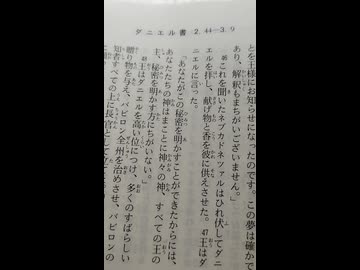 ダニエル書 2.44—3.9
とを王様にお知らせになったのです。この夢は確かで
あり、解釈もまちがいございません。」
46これを聞いたネブカドネツァルはひれ伏してダニ
エルを拝し、献げ物と香を彼に供えさせた。47王はダ
ニエルに言った。
「あなたがこの秘密を明かすことができたからには、
あなたたちの神はまことに神々の神、すべての王の
主、秘密を明かす方にちがいない。」
48王はダニエルを高い位につけ、多くのすばらしい
贈り物を与え、バビロン全州を治めさせ、バビロンの
知者すべての上に長官として